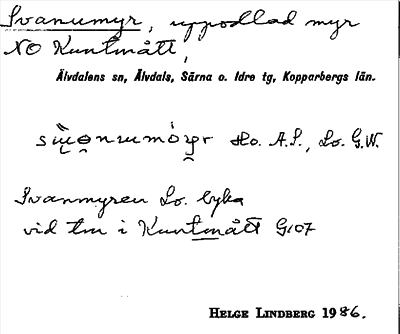 Svanumyr, uppodlad myr
NO Kuntmått,
Älvdalens sn, Älvdals, Särna o. Idre tg, Kopparbergs län.
Ho. A.S., Lo. G.W.
Svanmyren Lo. byka
vid tm i Kuntmått G:07
HELGE LINDBERG 1986.